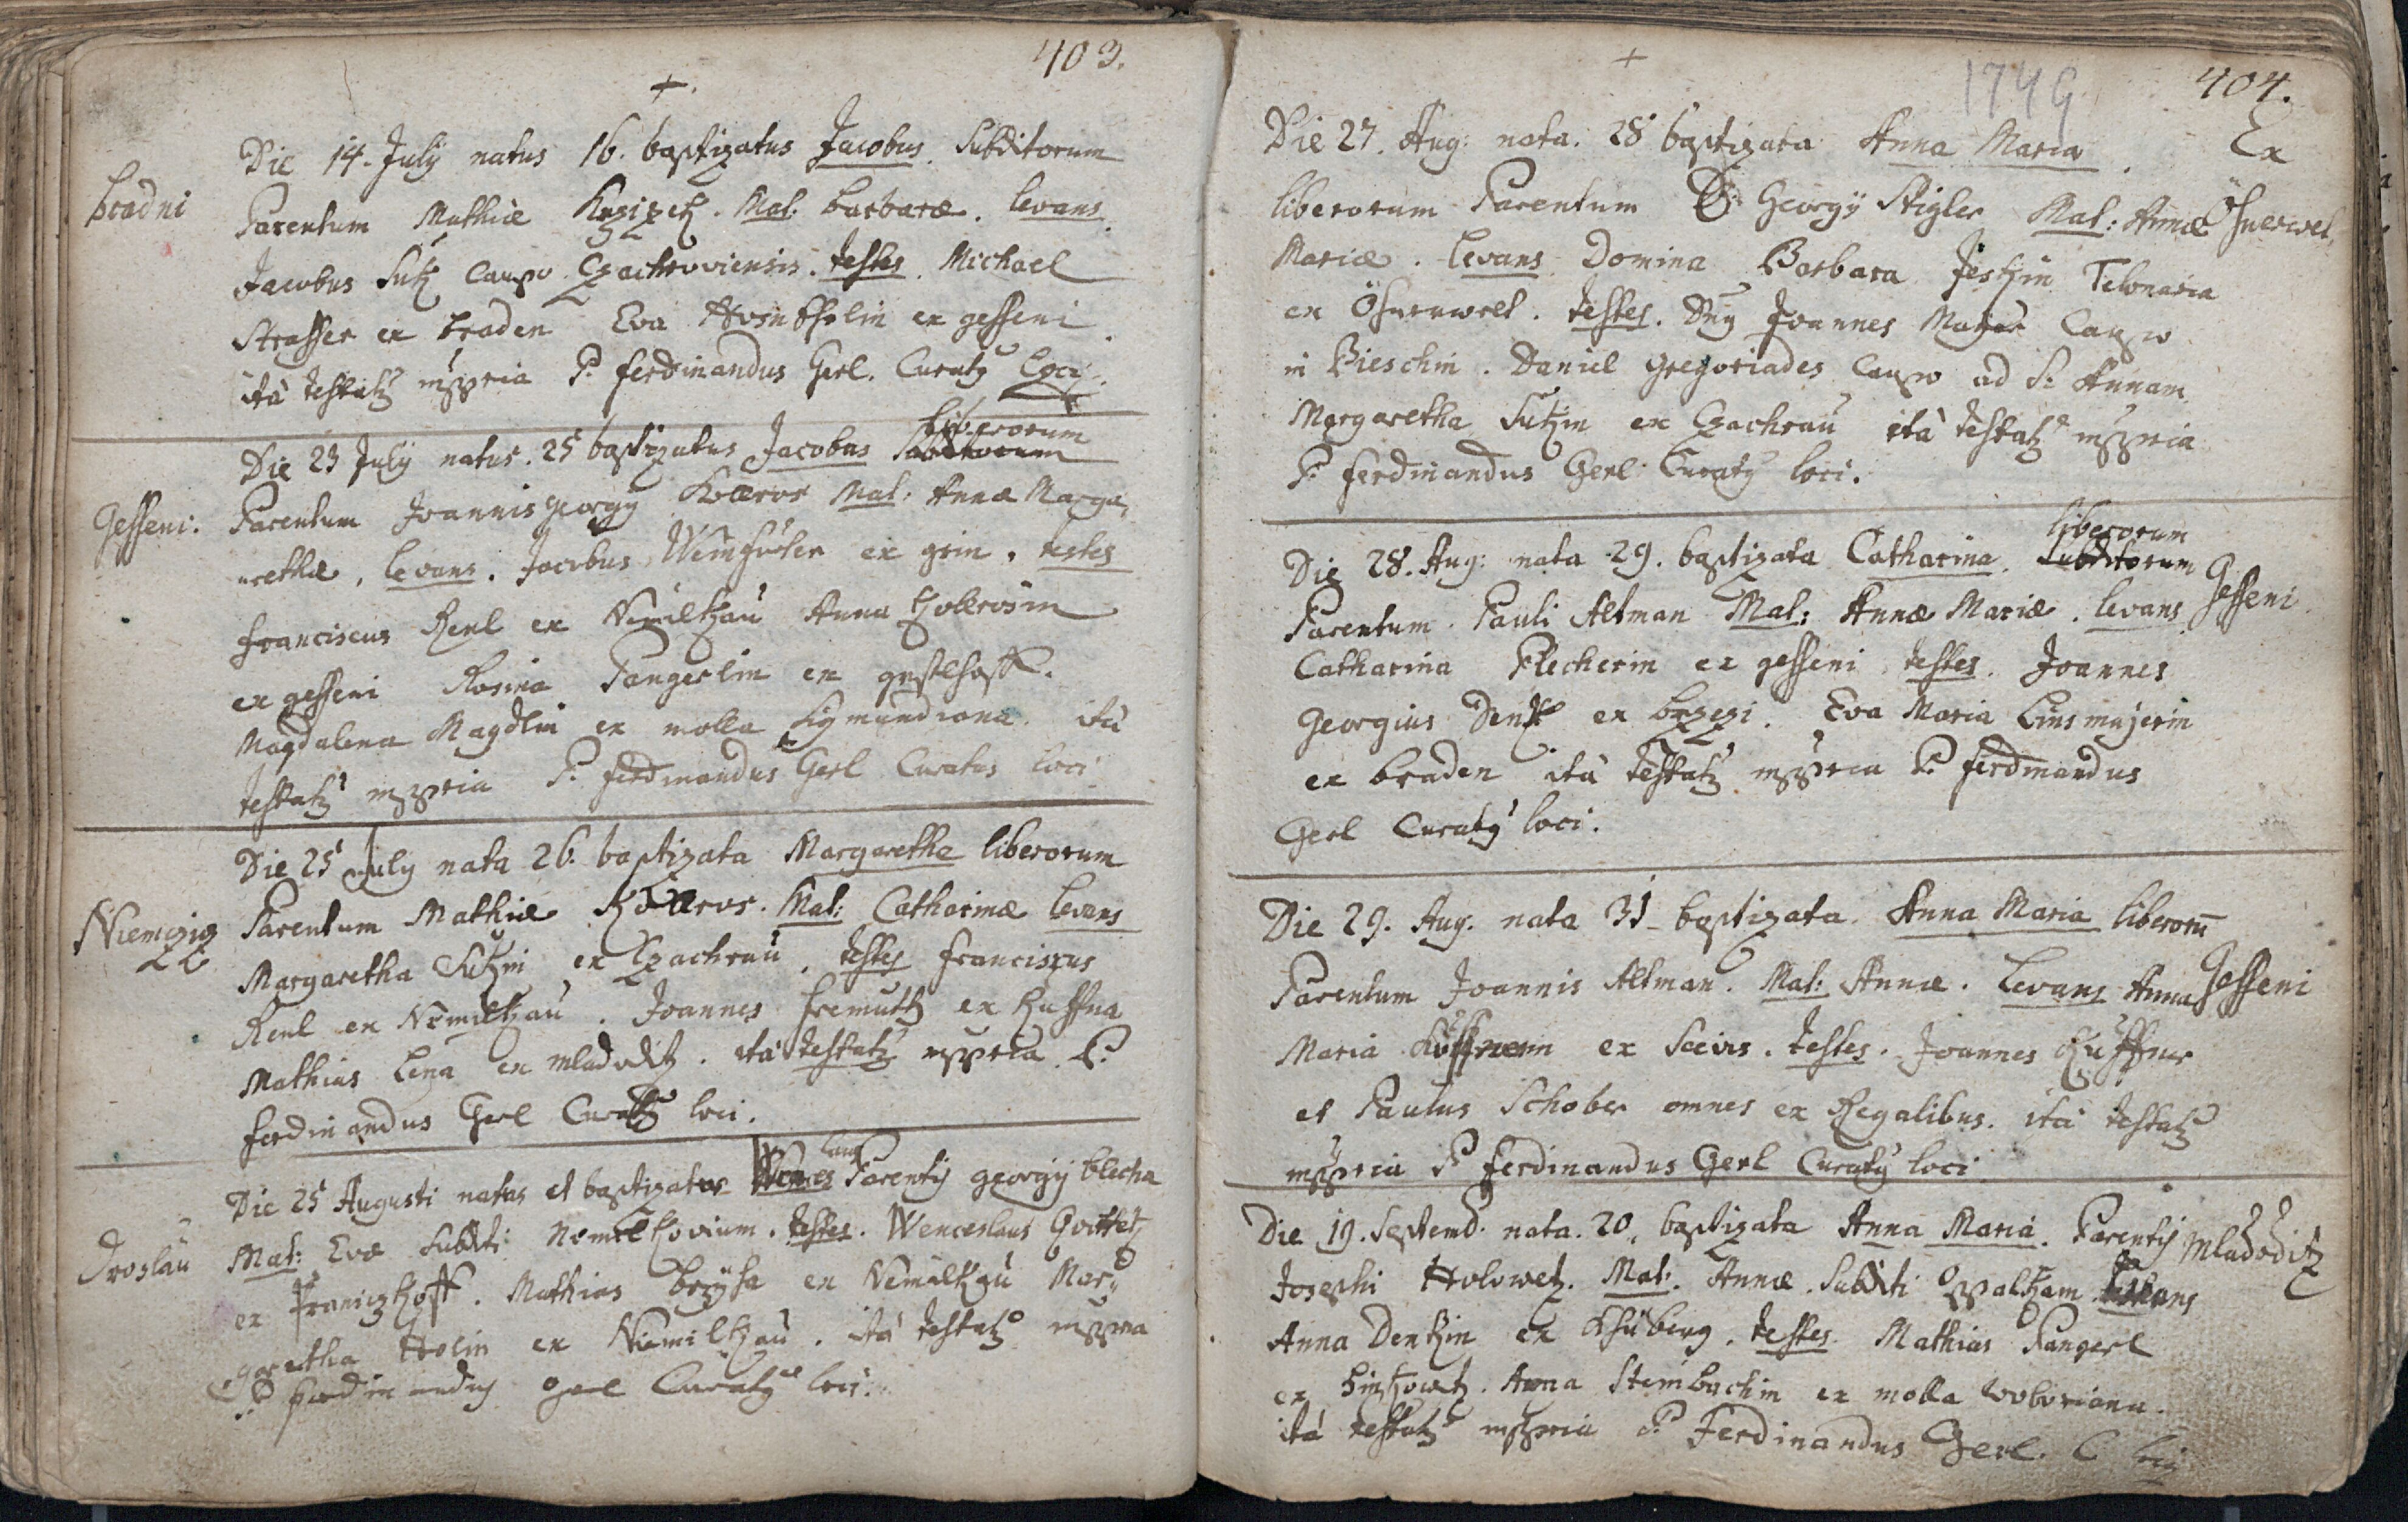 403.
+.
Die 14. July natus 16. baptizatus Jacobus. Subditorum
bradni
Parentum Mathiæ Krzizek. Mat: barbaræ. levans.
Jacobus Sutz Caupo Czachroviensis. testes. Michael
Strasser ex braden Eva ex gesseni
ità testatz mppria P. ferdinandus Gerl. Curatz loci.
liberorum
Die 23 July natus. 25 baptizatus Jacobus Subditorum
Gesseni.
Parentum Joannis georgy Mat: Annæ Marga,
rethæ, levans. Jacobus ex grin. testes
franciscus Renl ex Nemiltzau Anna
ex gesseni Rosina Pangerlin ex gestlhoff.
Magdalena Magdlin ex molla Sigmundiana. ità
testatz mppria P. ferdinandus Gerl Curatus loci
Die 25 July nata 26. baptizata Margaretha liberorum
Niemczicz
Parentum Mathiæ Mat: Catharinæ levans
Margaretha Sutzin ex Czachrau, testes franciscus
Renl ex Nemiltzau. Joannes fremuth ex
Mathias Lena ex mladoditz. ità testatz mppria P.
ferdinandus Gerl Curatz loci.
Die 25 Augusti natus et baptizatus Parentis georgy blecha
Droslau
Mat: Evæ subditi testes. Wenceslaus
ex Mathias ex Nemiltzau Mar,,
garetha Holin ex Niemiltzau. ità testatz mppria
P ferdinandus Gerl Curatz loci.
+
1749
404.
Die 27. Aug: nata. 28 baptizata Anna Maria. Ex
liberorum Parentum D: Georgy Stigler Mat: Annæ
Mariæ. levans Domina Barbara Telonaria
ex testes. Joannes Mayer Caupo
in Bieschin. Daniel gregoriades Caupo ad S: Annam
Margaretha Sutzin ex Czachrau ità testatz mppria
P. ferdinandus Gerl Curatz loci.
liberorum
Die 28. Aug: nata 29. baptizata Catharina. Subditorum
Gesseni
Parentum. Pauli Altman Mat: Annæ Mariæ. levans
Catharina Plecherin ex gesseni testes. Joannes
Georgius ex brzezi. Eva Maria Linsmajerin
ex braden ità testatz mppria P. ferdinandus
Gerl Curatz loci.
Die 29. Aug. nata 31 baptizata. Anna Maria liberorū
Gesseni
Parentum Joannis Altman. Mat: Annæ. Levans Anna
Maria ex Seevis. testes. Joannes
et Paulus Schober omnes ex Regalibus. ità testatz
mppria P. ferdinandus Gerl Curatz loci
Die 19. Septemb. nata. 20. baptizata Anna Maria. Parentis
mladoditz
Josephi Holowetz. Mat: Annæ. Subditi levans
Anna Dentzin ex testes. Mathias Pangerl
ex Anna Steinbachin ex molla woboriana.
ità testatz mppria P. Ferdinandus Gerl. C loci